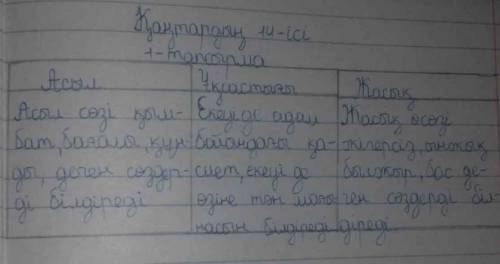 Қаңтардың 14-ісі
1-тапсырма
Асыл
Асыл сөзі қым-
бат, бағалы, құн-
ды, деген сөздер-
ді білдіреді
Ұқсастығы
Екеуі де адам
бойындағы қа-
сиет, екеуі де
өзіне тән мағы-
насын білдіреді
Жасық
Жасық сөзі
жігерсіз, ынжық
былжыр, бос де-
ген сөздерді біл-
діреді